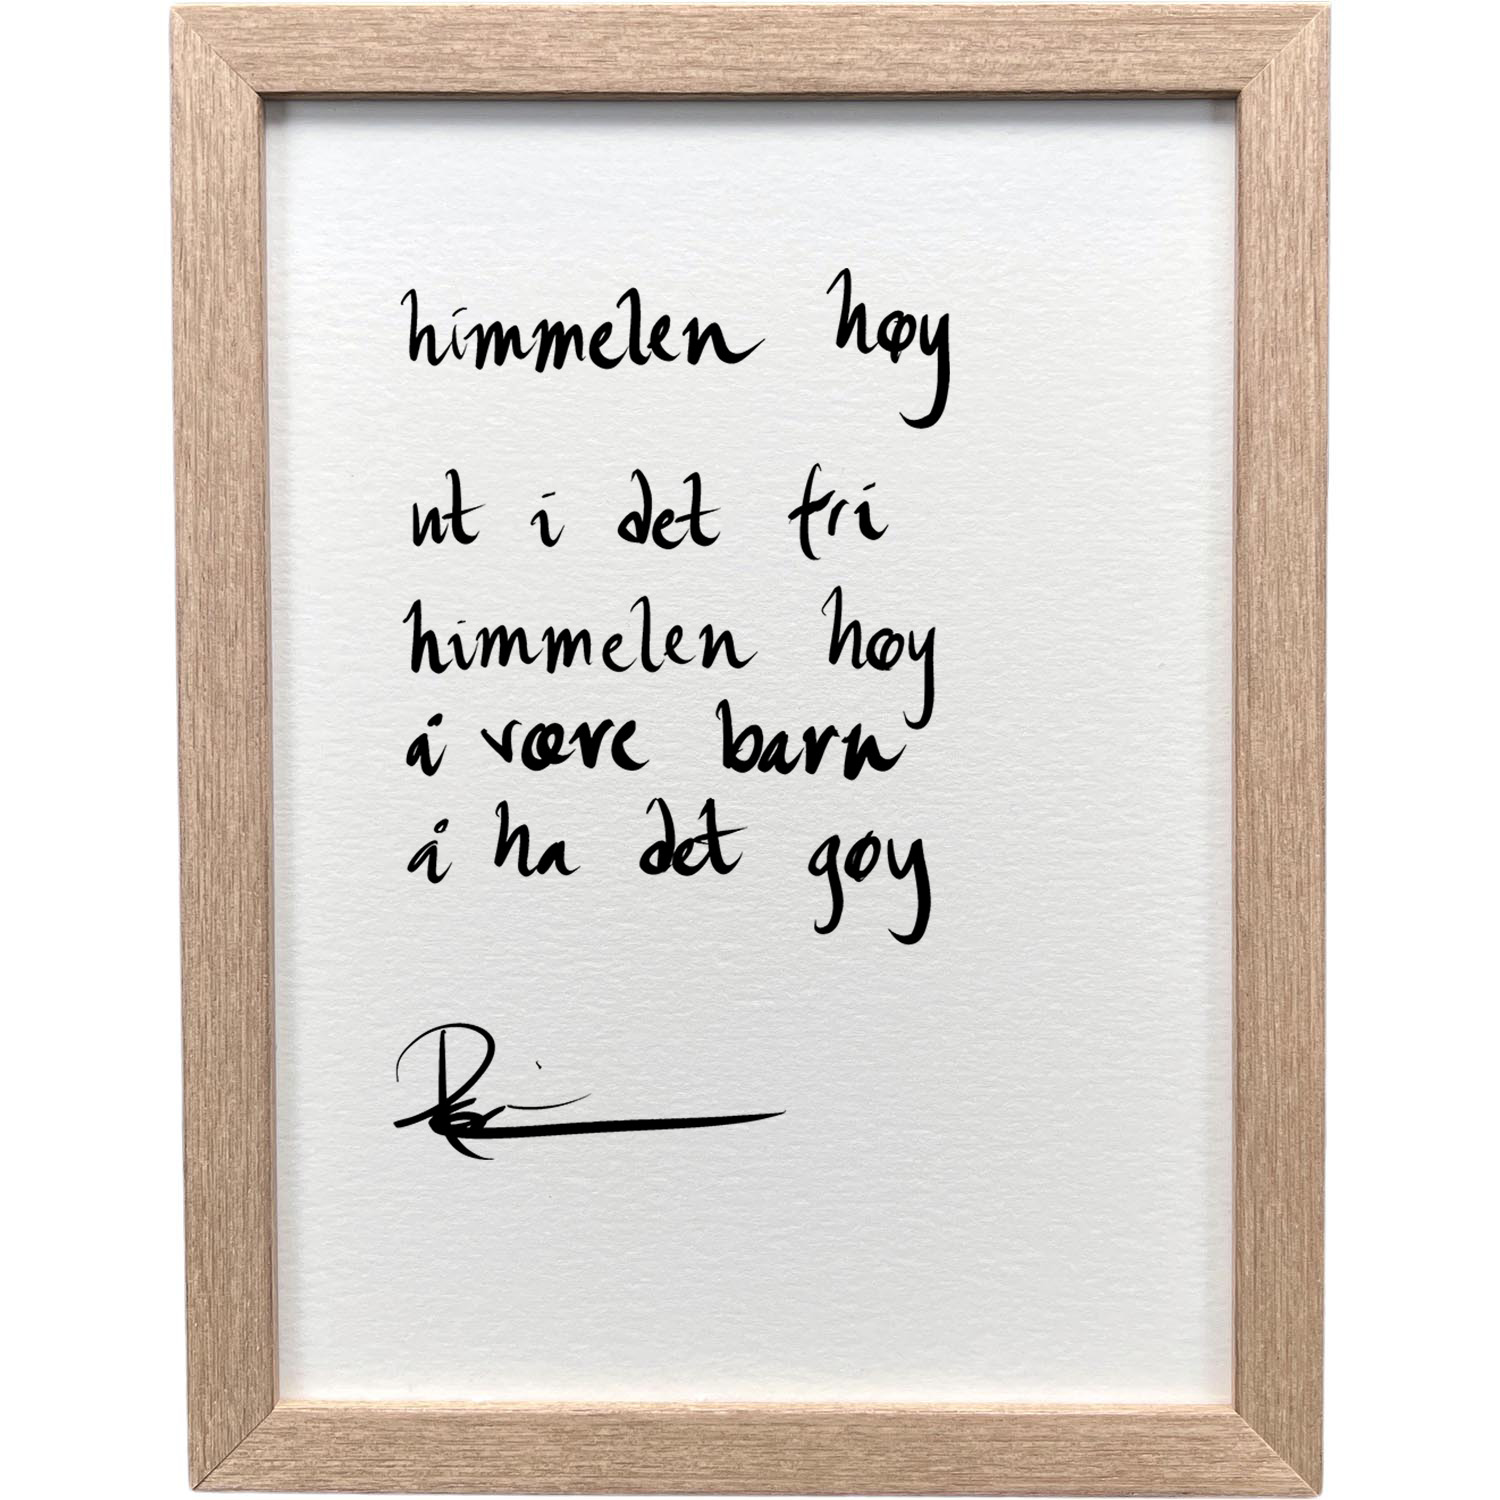 himmelen høy
ut i det fri
himmelen høy
å være barn
å ha det gøy